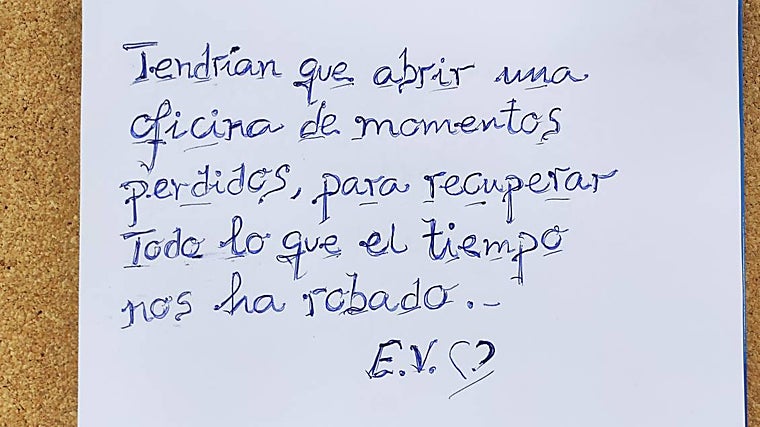 Tendrían que abrir una
oficina de momentos
perdidos, para recuperar
Todo lo que el tiempo
nos ha robado.-
E.V.♡